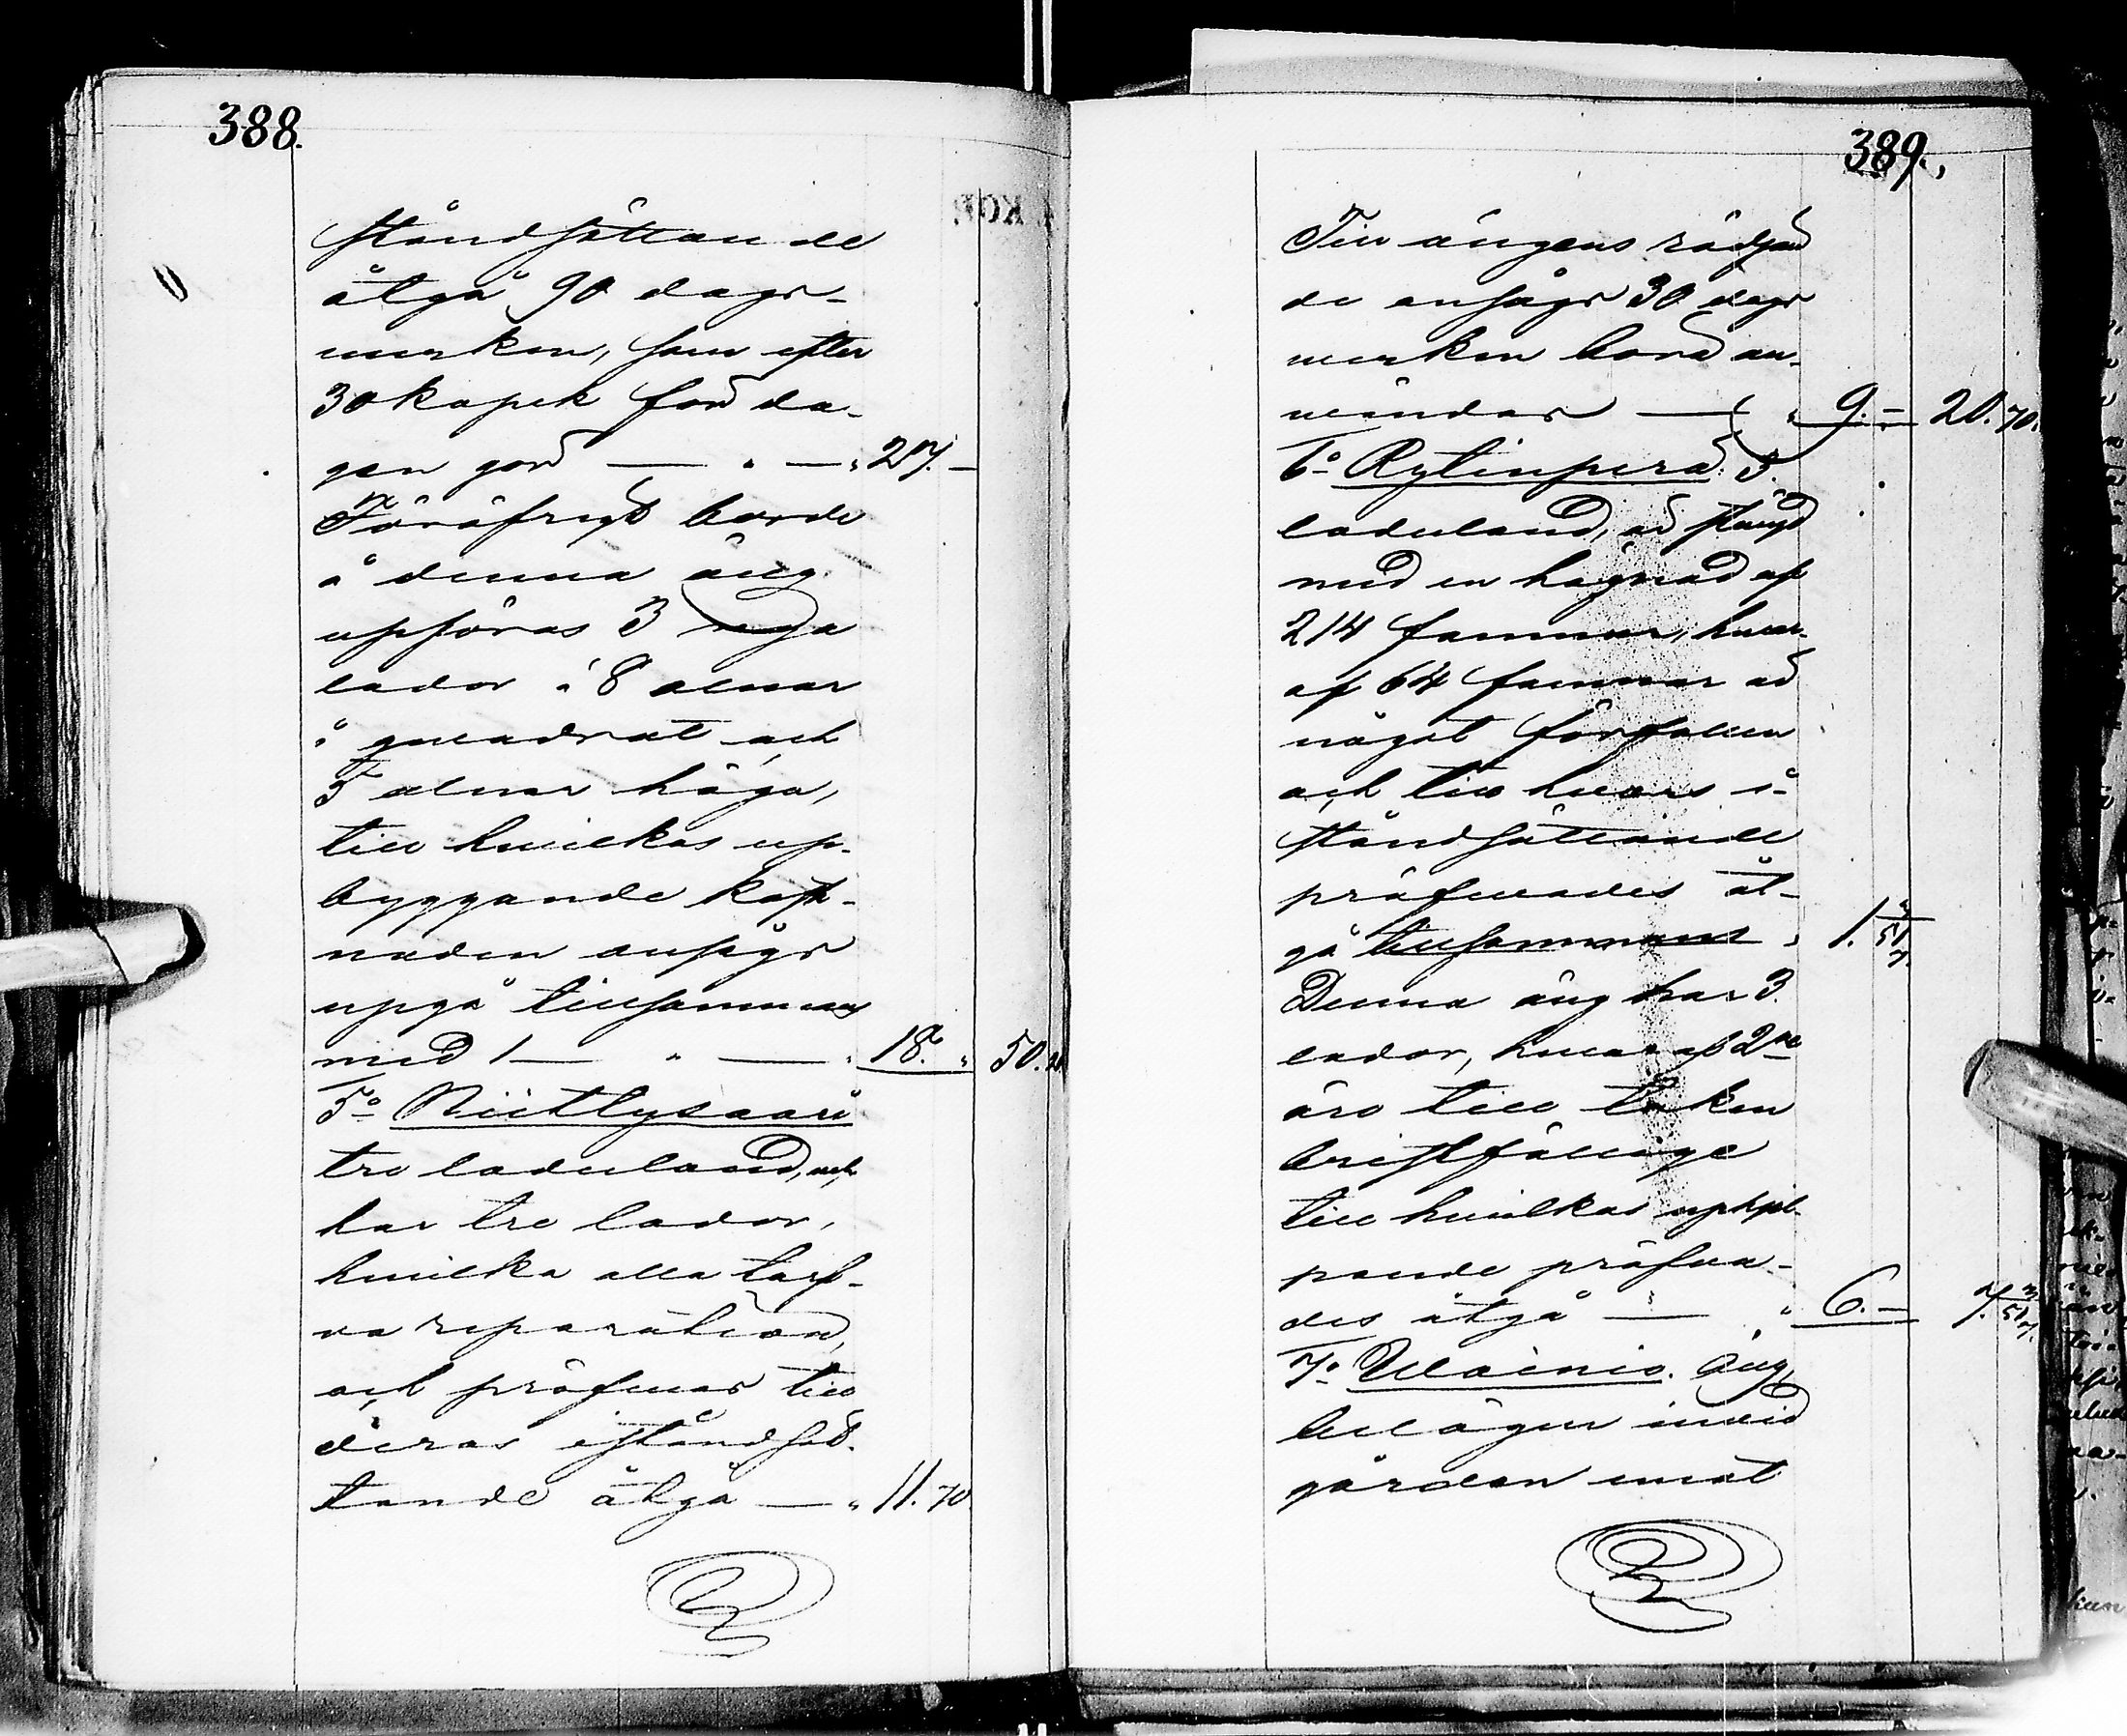 388.
ståndsättande
åtgå 90 dags-
werken, som efter
30 kopek för da-
gen gör — " — " 27. —
Föröfrigt borde
å denna äng
uppföras 3 nya
lador à 8 alnar
i quadrat och
5 alnar höga,
till hvilkas up-
byggande kost-
naden ansågs
uppgå tillsammans
med 1 — " — " 18. " 50.
5o Niittysaari
tre laduland, och
har tre lador,
hvilka alla tarf-
va reparation,
och pröfvas till
deras iståndsät-
tande åtgå — " 11. 70
389.
Till ängens rödjan
de ansågs 30 dags
werken böra an-
vändas — " 9. — 20. 70.
6o Rytinperä 3.
laduland, är stängd
med en hägnad af
214 famnar, hvar-
af 64 famnar är
något förfallen
och till hvars i-
ståndsättande
pröfvades åt-
gå tillsammans " 1. 51 3/7.
Denna äng har 3.
lador, hvaraf 2ne
äro till taken
bristfällige
till hvilkas uphjel-
pande pröfva-
des åtgå — " 6. — 7. 51 3/7.
7o Ullainio. Äng,
belägen invid
gården emot